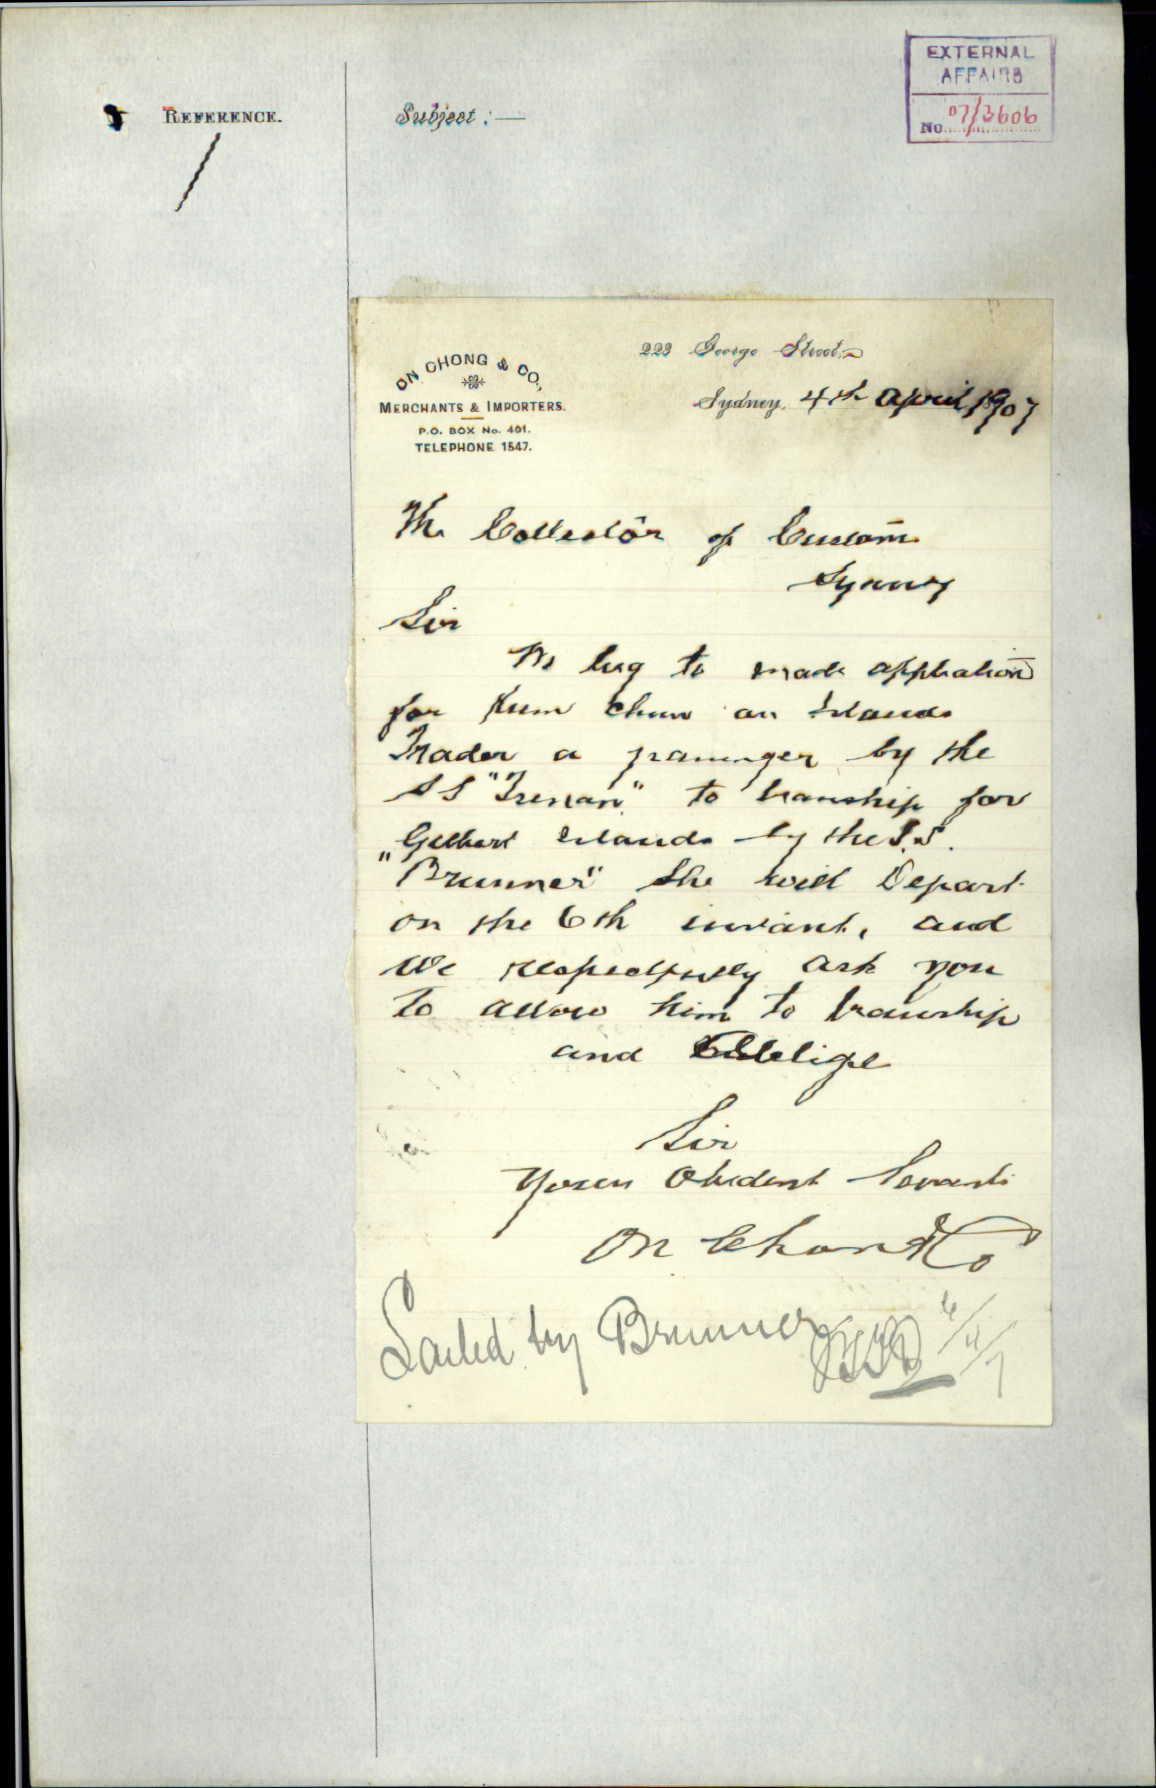 EXTERNAL
AFFAIRS
No. 07/3606
REFERENCE.
Subject :—
ON CHONG & CO.,
MERCHANTS & IMPORTERS.
P.O. BOX No. 401.
TELEPHONE 1547.
223 George Street,
Sydney, 4th April 1907
The Collector of Customs
Sydney
Sir
We beg to made application
for Kum Chuw an Islands
Trader a passenger by the
SS "Tyrian" to tranship for
Gilbert Islands by the S.S.
"Brunner" She will Depart
on the 6th instant, and
We respectfully ask you
to allow him to tranship
and Oblige
Sir
Yours Obedient Servants
On Chong & Co
Sailed by Brunner
6/4/7